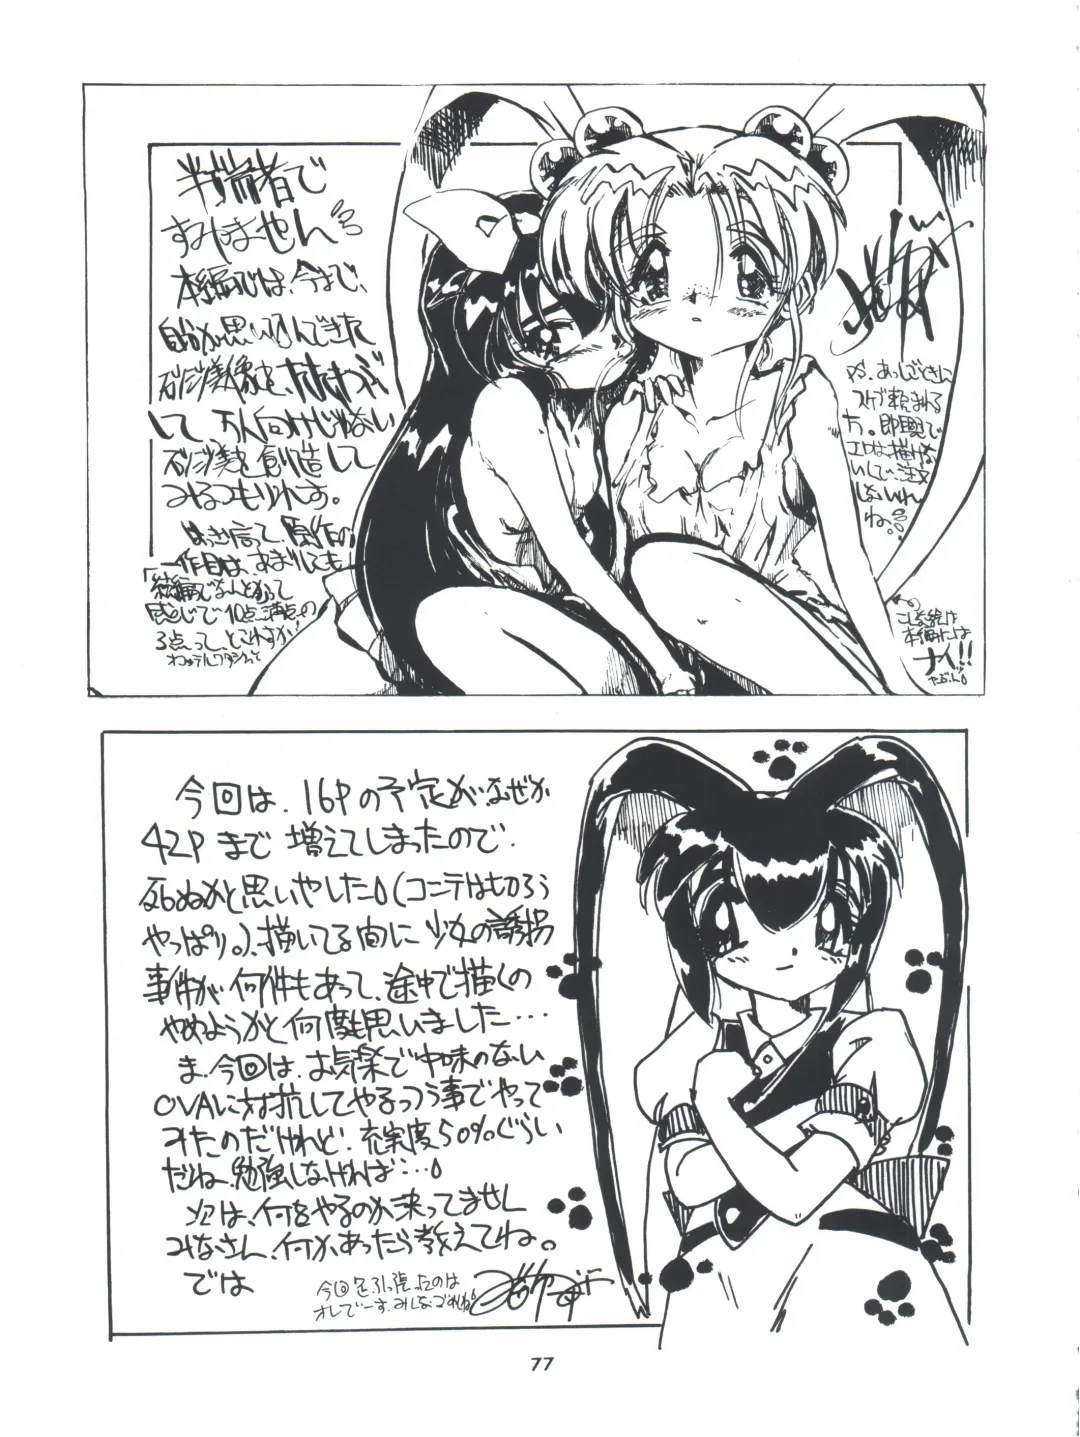 すみません
本編では、今まで、
自分が思い込んできた
して 万人向けじゃない
を創造して
みるつもりれす。
はっきり言って、原作の
一作目は、あまりにも
「続編でなんとかって
感じで10点満点の
3点って、とこれすか!
PS.あっしごときに
スケブ頼まれる
方。即興で
エロは描けな
いんで、注文
しないれん
ね
こんな絵は
本編には
ナイ!!
たぶん。
今回は、16Pの予定が、なぜか
42Pまで増えてしまったので、
死ぬかと思いやした。(コニテは切ろう
やっぱり。)、描いてる間に少女の誘拐
事件が何件もあって、途中で描くの
やめようかと何度も思いました…
ま、今回は、お気楽で中味のない
OVAに対抗してやるっつう事でやって
みたのだけれど、充実度50%ぐらい
だね、勉強しなければ…。
次は、何をやるのか未ってません
みなさん、何かあったら教えてね。
では
今回足引っ張ったのは
オレでーす。みんなごめんね。
77